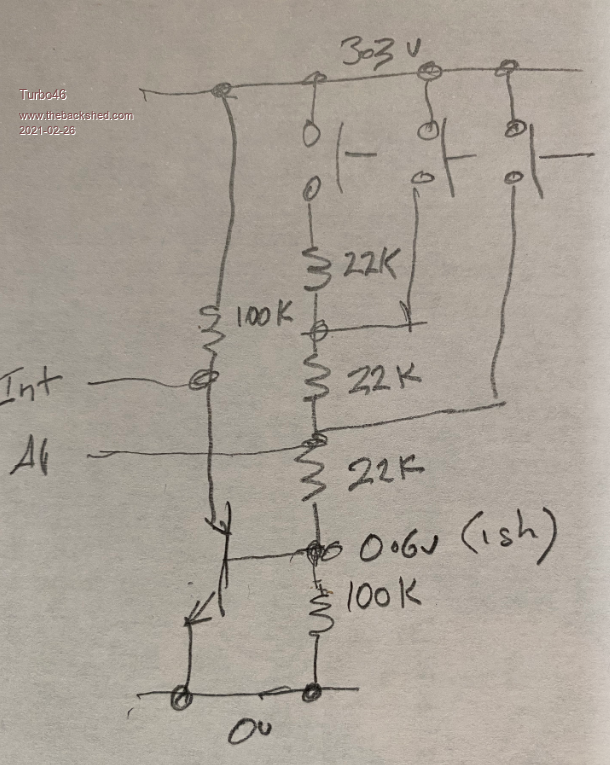 3.3 V
Turbo46
www.thebackshed.com
2021-02-26
22K
100K
Int
22K
22K
0.6v (ish)
100K
0v